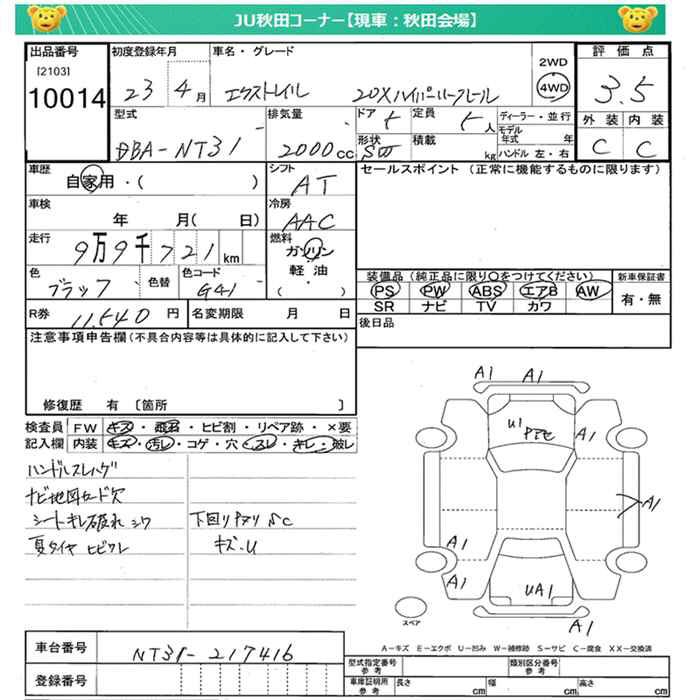 JU秋田コーナー【現車：秋田会場】
出品番号 初度登録年月 車名・グレード 2WD 評価点
[2103]
10014 23 4月 エクストレイル 20Xハイパールーフレール 4WD 3.5
型式 排気量 ドア 定員 ディーラー・並行 外装 内装
DBA-NT31 2000cc 5 5人 モデル年式 年
形状 積載 kg ハンドル 左・右 C C
SW
車歴 自家用・( ) シフト AT セールスポイント (正常に機能するものに限ります)
車検 年 月( 日) 冷房 AAC
走行 9万9千721km 燃料 ガソリン
軽油
( )
色 ブラック 色替 色コード G41
装備品(純正品に限り○をつけてください) 新車保証書
PS PW ABS エアB AW 有・無
SR ナビ TV カワ
R券 11,540円 名変期限 月 日 後日品
注意事項申告欄(不具合内容等は具体的に記入して下さい)
修復歴 有 [箇所 ]
検査員 FW キズ・飛石・ヒビ割・リペア跡・×要
記入欄 内装 キズ・汚レ・コゲ・穴・スレ・キレ・破レ
ハンドルスレハゲ
ナビ地図カード欠
シートキレ破れ シワ 下回りサビ SC
夏タイヤ ヒビワレ キズ・U
A1 A1
U1 A1
A1
A1
A1 UA1
A1
スペア
A－キズ E－エクボ U－凹み W－補修跡 S－サビ C－腐食 XX－交換済
車台番号 NT31-217416
登録番号
型式指定番号 参考 類別区分番号 参考
車庫証明用 参考 長さ cm 幅 cm 高さ cm